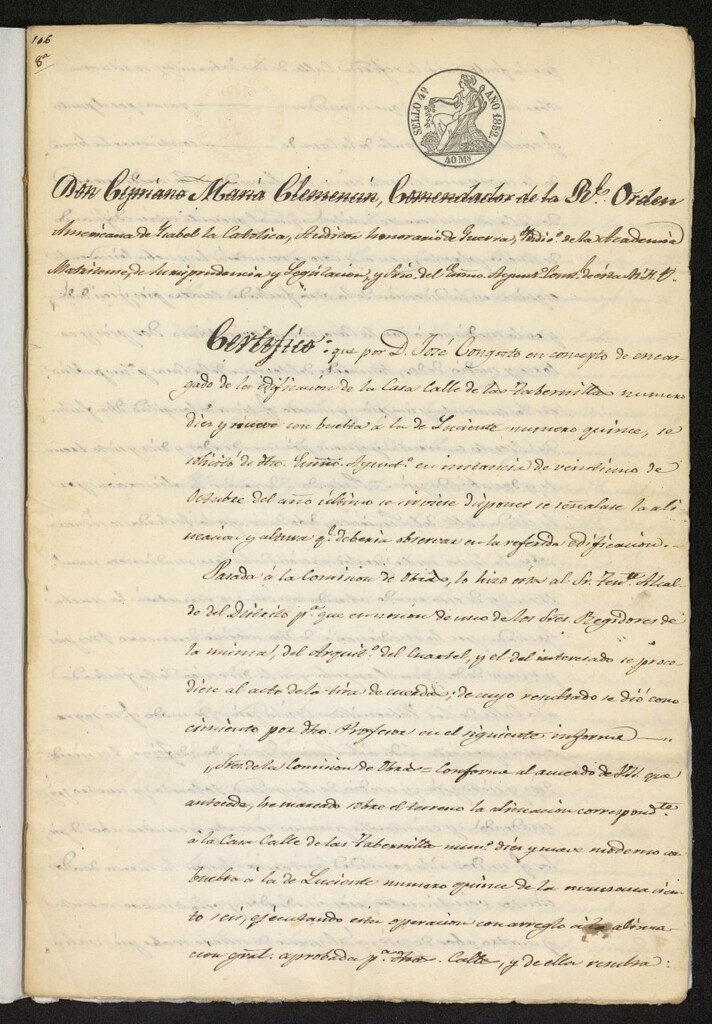 106
8ª
SELLO 4º AÑO 1852.
40 Mº
Don Cipriano Maria Clemencin, Comendador de la Rl. Orden
Americana de Ysabel la Catolica, Auditor honorario de Guerra, Yndivº. de la Academia
Matritense, de Jurisprudencia y Legislacion, y Srio. del Exmo. Ayuntº. Constl. de esta M. H. V.
Certifico: que por D. José Congosto en concepto de encar-
gado de la edificacion de la Casa Calle de las Tabernillas numero
diez y nueve con buelta á la de Luciente numero quince, se
solicitó de dho. Exmo. Ayuntº. en instancia de veintiuno de
Octubre del año último se sirviese disponer se señalase la ali-
neacion y altura q.e deberia observar en la referida edificacion.
Pasada á la Comision de Obras, lo hizo esta al Sr. Tente. Alcal-
de del Distrito pª. que en union de uno de los Sres. Regidores de
la misma, del Arquitº. del Cuartel, y el del interesado se proce-
diese al acto de la tira de cuerdas; de cuyo resultado se dió cono-
cimiento por dho. Profesor en el siguiente informe
„Sres. de la Comision de Obras = Conforme al acuerdo de V.SS. que
antecede, he marcado sobre el terreno la alineacion correspondte.
á la Casa Calle de las Tabernillas numº. diez y nueve moderno con
buelta á la de Luciente numero quince de la manzana cien-
to seis, ejecutando esta operacion con arreglo á la alinea-
cion gral. aprobada pª. dha. Calle, y de ella resulta: